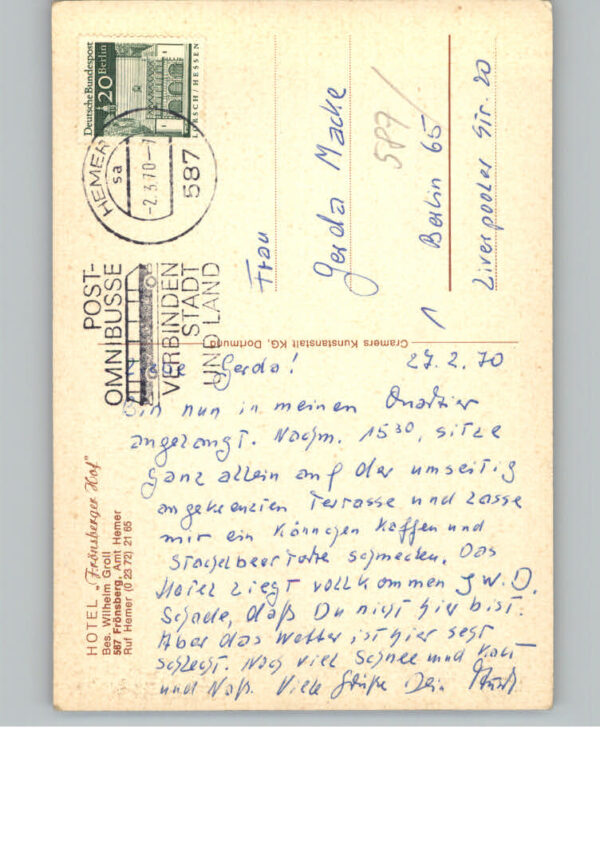 Deutsche Bundespost
Berlin
20
LORSCH/HESSEN
HEMER
sa
-2.3.70-7
587
POST-
OMNIBUSSE
VERBINDEN
STADT
UND LAND
Frau
Gerda Macke
587/
1 Berlin 65
Liverpooler Str. 20
Cramers Kunstanstalt KG, Dortmund
HOTEL „Frönsberger Hof"
Bes. Wilhelm Groll
587 Frönsberg, Amt Hemer
Ruf Hemer (0 23 72) 21 65
27.2.70
Liebe Gerda!
Bin nun in meinen Quartier
angelangt. Nachm. 15 30, sitze
ganz allein auf der umseitig
angekreuzten Terrasse und lasse
mir ein Kännchen Kaffee und
Stachelbeertorte schmecken. Das
Hotel liegt vollkommen J.W.D.
Schade, daß Du nicht hier bist.
Aber das Wetter ist hier sehr
schlecht. Noch viel Schnee und kalt
und Naß. Viele Grüße Dein